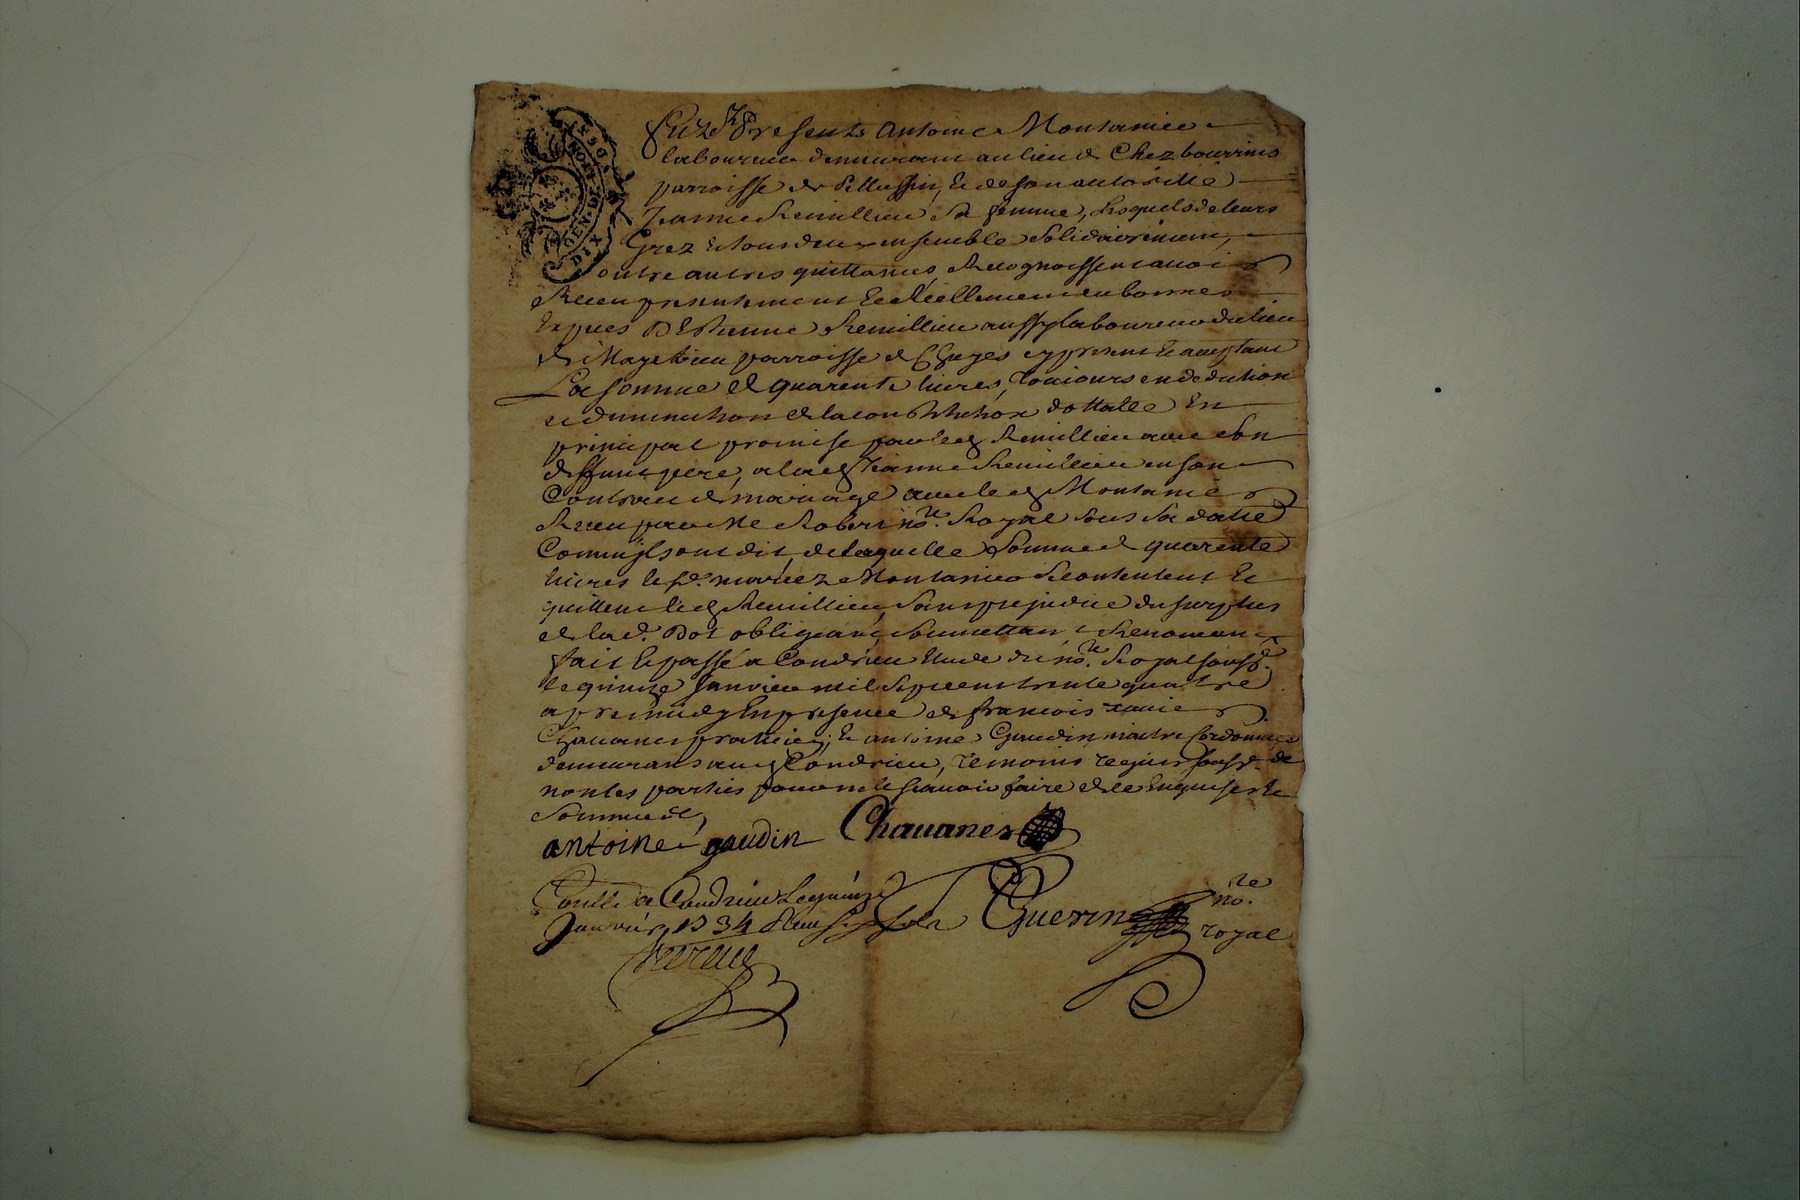 GEN. DE LYON
DIX
furent Presents Antoine Montanier
laboureur demeurant au lieu de Chez bourrins
parroisse de Pellussin, et de son autoritté
Jeanne Remillieu sa femme, lesquels de leurs
Grez et tous deux ensemble solidairement,
outre autres quittances, Recognoissent avoir
Receu presentement et réellement en bonnes
Espuces D'Estienne Remillieu aussy laboureur du lieu
de parroisse de Chuyes cy present et acceptant
La somme de quarente livres, toujours en deduction
et diminution de la constitution dottalle En
principal promise par led Remillieu avec son
deffunt pere, a lad Jeanne Remillieu en son
Contract de mariage avec led Montanier
Receu par Me Robert nore. Royal sous sa datte
Comm'ils ont dit, de laquelle somme de quarente
livres les sd. mariez Montanier se contentent Et
quittent led Remillieu, sans prejudice du surplus
de lad. Dot obligeant, soumettant, Renonceant
fait Et passé a Condrieu Etude du nore. Royal soussé.
le quinze Janvier mil sept cent trente quatre
apremidy En presence de francois Xavier
Chavanes praticien, Et antoine Gaudin maitre Cordonnier
demeurans aud Condrieu, temoins requis soussé. Et
non les parties pour ne le scavoir faire de ce Enquises Et
Sommeés
antoine gaudin Chauanes
Contllé a Condrieu le quinze
Janvier 1734 Receu six sols Guerin nore. royal